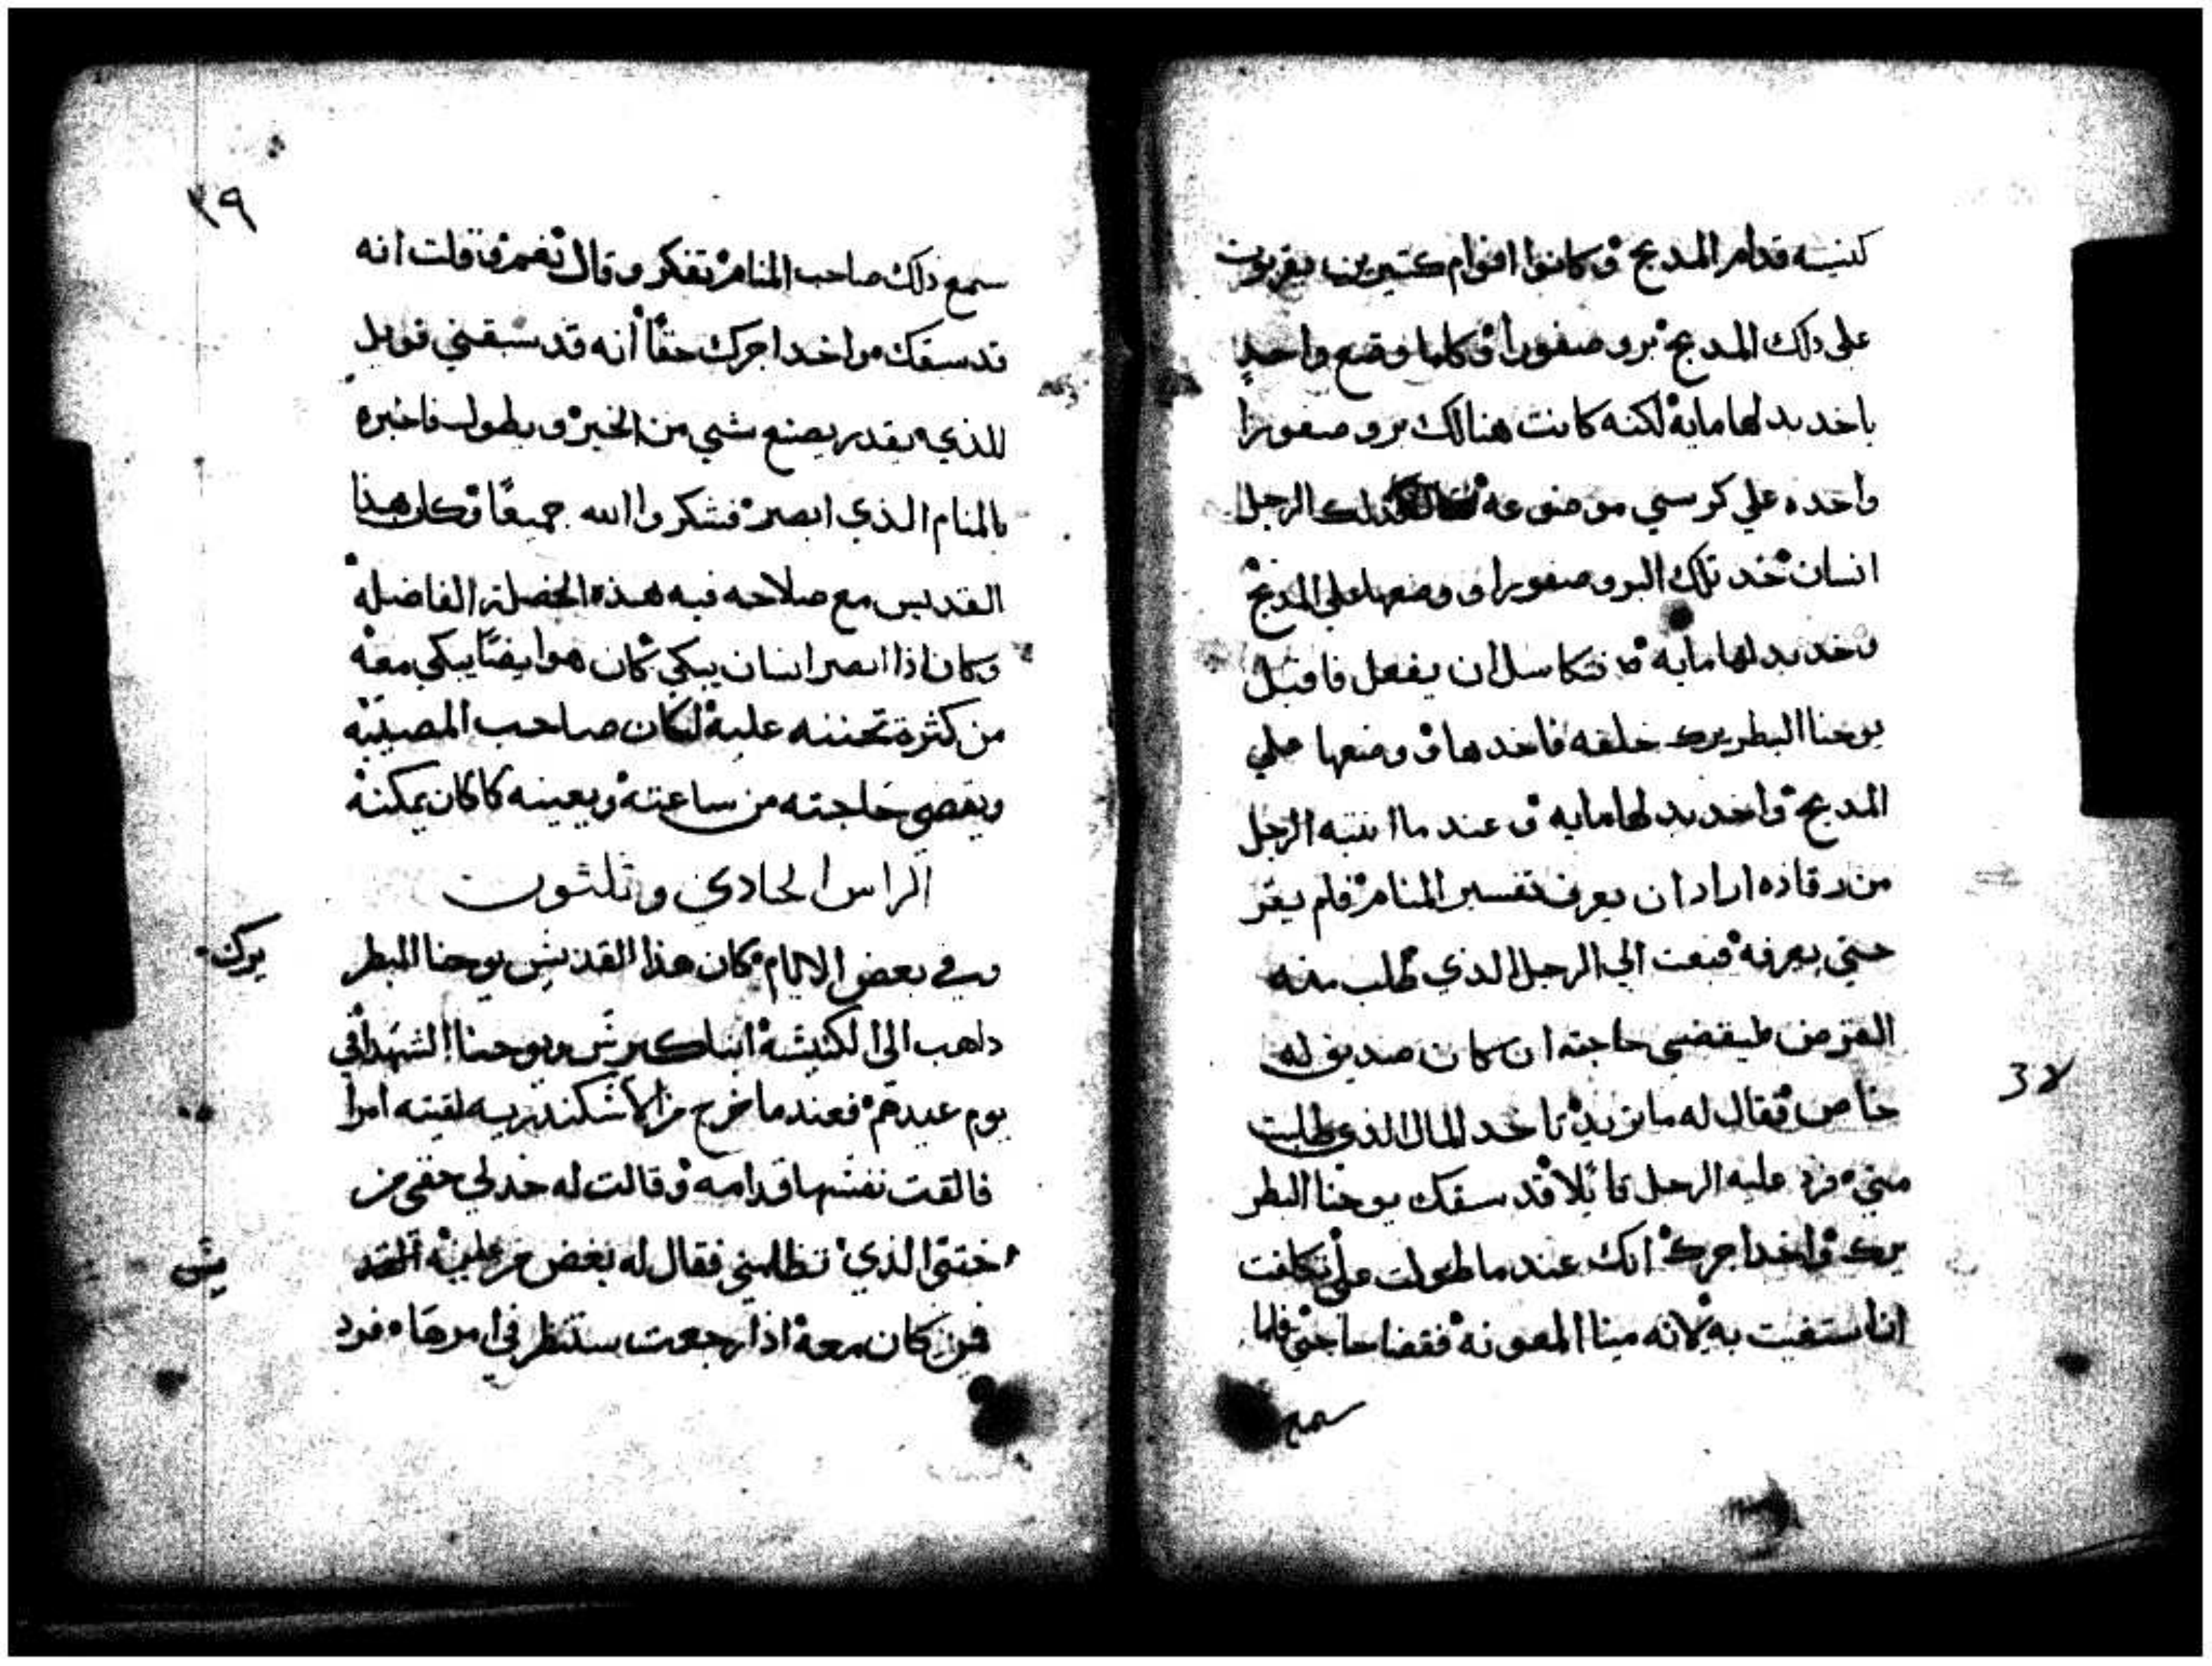 كنيسه قدام المدبح وكانوا اقوام كتيرين يقربون
على دلك المدبح بروصفورا وكلما وضع واحد
ياخد بدلها مايه لكنه كانت هنالك بروصفورا
واحده علي كرسي موضوعه الرجل
انسان خد تلك البروصفورا ووضعها علي المدبح
وخد بدلها مايه فتكاسل ان يفعل فاقبل
يوحنا البطريرك خلفه فاخدها ووضعها علي
المدبح واخد بدلها مايه وعند ما انتبه الرجل
من رقاده اراد ان يعرف تفسير المنام فلم يقر
حتي يعرفه فبعت الي الرجل الذي طلب منه
القرض ليقضي حاجته ان كان صديق له
خاص فقال له ما تريد تاخد المال الذي طلبت
مني فرد عليه الرجل قايلا قد سبقك يوحنا البطر
يرك واخد اجرك انك عند ما طولت علي تكلفت
انا استغيت به لانه مينا المعونه فقضا حاجتي فلما
سمع
38
٣٩
سمع دلك صاحب المنام تفكر وقال نعم قلت انه
قد سبقك واخد اجرك حقا انه قد سبقني فويل
للذي يقدر يصنع شي من الخير ويطول فاخبره
بالمنام الذي ابصر فشكروا الله جميعا وكان هذا
القديس مع صلاحه فيه هذه الخصلة الفاضله
وكان اذا ابصر انسان يبكي كان هو ايضا يبكي معه
من كثرة تحننه عليه لكان صاحب المصيبه
ويقضي حاجته من ساعته ويعينه كما كان يمكنه
الراس الحادي وتلثون
وفي بعض الايام كان هذا القديس يوحنا البطر
يرك
داهب الى الكنيسة ابا كير ويوحنا الشهدا في
يوم عيدهم فعندما خرج من الاسكندريه لقيته امرا
فالقت نفسها قدامه وقالت له خد لي حقي من
ختني الذي تظلمني فقال له بعض من عليه القد
يس
فمن كان معه اذا رجعت ستنظر في امرها فرد